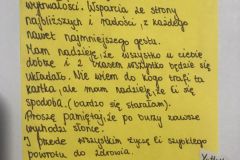 wytrwałości. Wsparcia ze strony
najbliższych i radości, z każdego
nawet najmniejszego gestu.
Mam nadzieję, że wszystko u ciebie
dobrze i z czasem wszystko będzie się
układało. Nie wiem do kogo trafi ta
kartka, ale mam nadzieję, że Ci się
spodoba. (bardzo się starałam).
Proszę pamiętaj, że po burzy zawsze
wychodzi słońce.
I przede wszystkim życzę Ci szybkiego
powrotu do zdrowia.